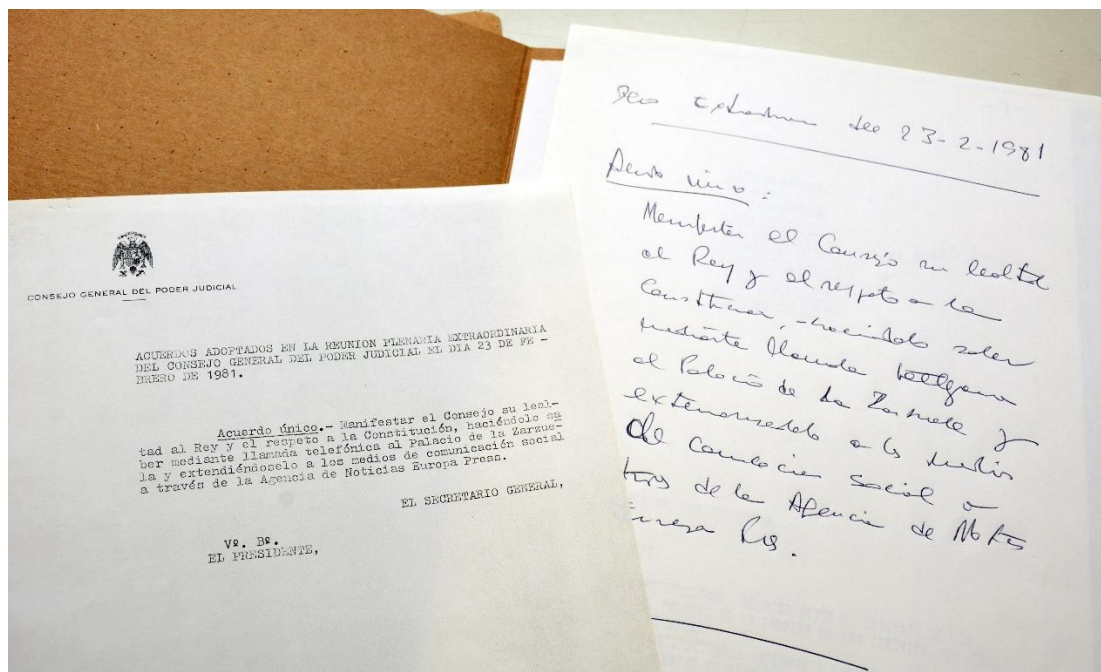 CONSEJO GENERAL DEL PODER JUDICIAL
ACUERDOS ADOPTADOS EN LA REUNION PLENARIA EXTRAORDINARIA
DEL CONSEJO GENERAL DEL PODER JUDICIAL EL DIA 23 DE FE -
BRERO DE 1981.
Acuerdo único.- Manifestar el Consejo su leal-
tad al Rey y el respeto a la Constitución, haciéndolo sa
ber mediante llamada telefónica al Palacio de la Zarzue-
la y extendiéndoselo a los medios de comunicación social
a través de la Agencia de Noticias Europa Press.
EL SECRETARIO GENERAL,
Vº. Bº.
EL PRESIDENTE,
23-2-1981
Manifestar el Consejo su lealtad
al Rey y el respeto a la
haciéndolo saber
mediante llamada
al Palacio de la Zarzuela y
a los medios
de social a
de la Agencia de